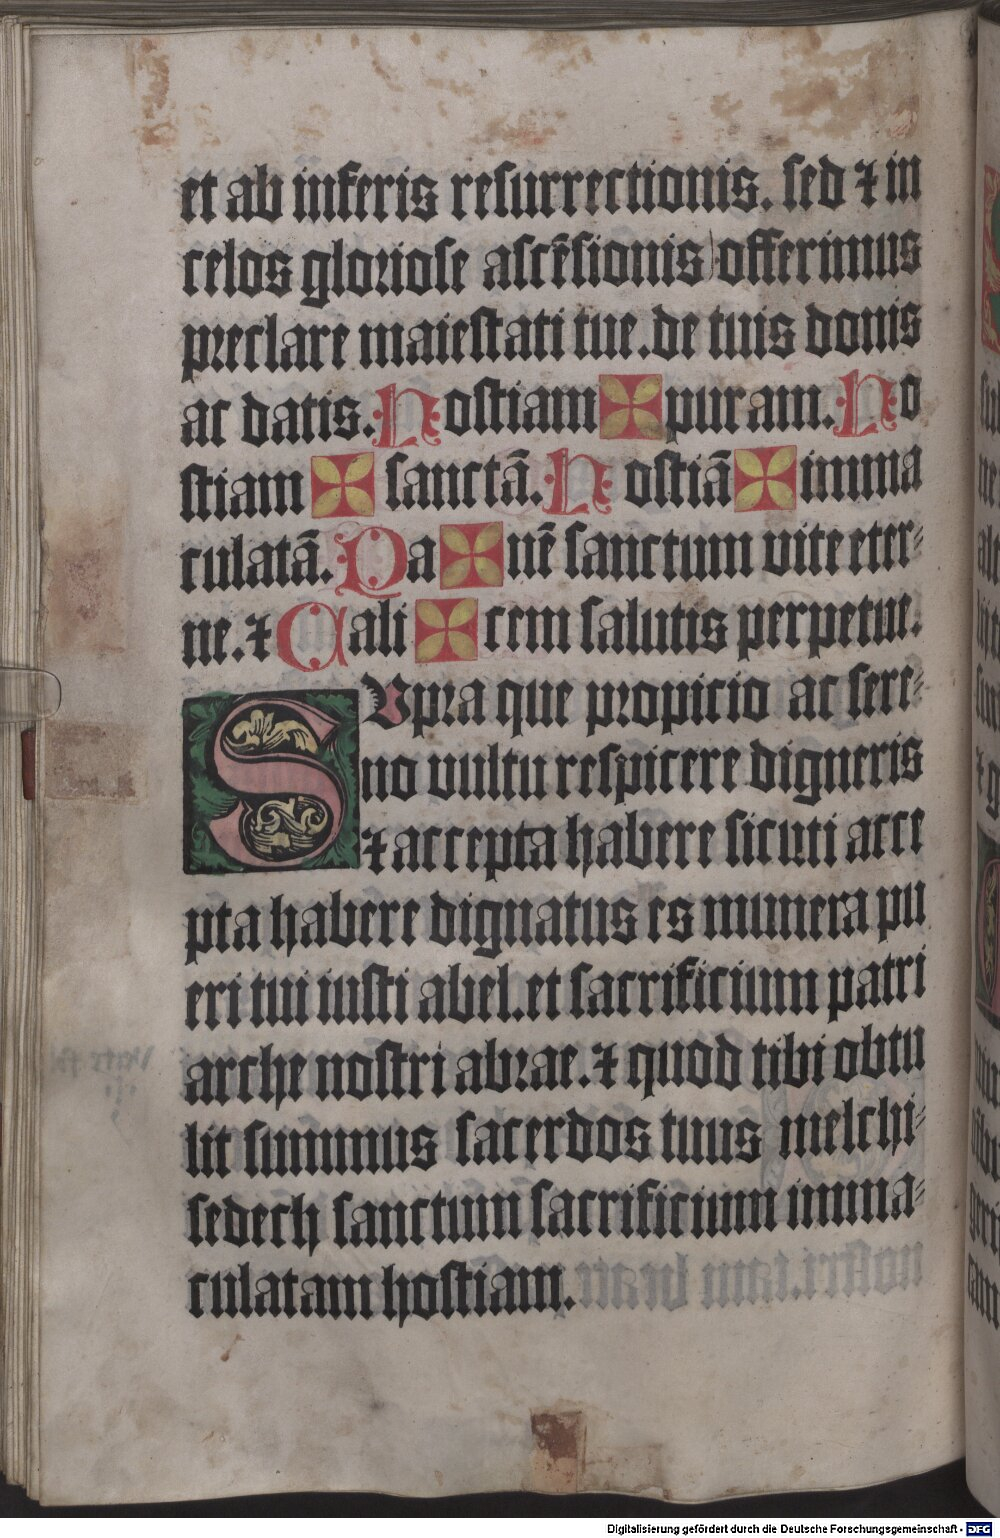 et ab inferis resurrectionis. sed ⁊ in
celos gloriose ascēsionis) offerimus
preclare maiestati tue. de tuis donis
ac datis. Hostiam ✠ puram. Ho
stiam ✠ sanctā. Hostiā ✠ imma
culatā. Pa ✠ nē sanctum vite eter⸗
ne. ⁊ Cali ✠ cem salutis perpetue.
SUpra que propicio ac sere⸗
no vultu respicere digneris
⁊ accepta habere sicuti acce
pta habere dignatus es munera pu
eri tui iusti abel. et sacrificium patri
arche nostri abrae. ⁊ quod tibi obtu
lit summus sacerdos tuus melchi⸗
sedech sanctum sacrificium imma⸗
culatam hostiam.
Digitalisierung gefördert durch die Deutsche Forschungsgemeinschaft - DFG